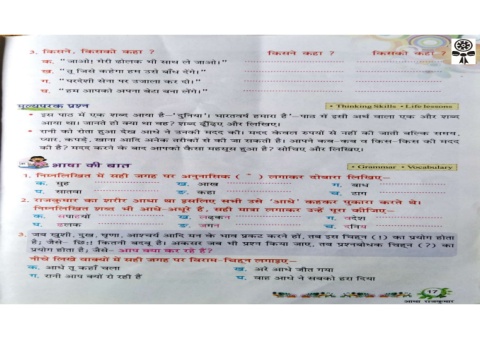 3. किसने, किसको कहा ? किसने कहा ? किसको कहा ?
क. "जाओ! मेरी ढोलक भी साथ ले जाओ।"
ख. "तू जिसे कहेगा हम उसे बाँध देंगे।"
ग. "परदेशी सेना पर उजाला कर दो।"
घ. "हम आपको अपना बेटा बना लेंगे।"
मूल्यपरक प्रश्न • Thinking Skills • Life lessons
• इस पाठ में एक शब्द आया है–'दुनिया'। भारतवर्ष हमारा है'–पाठ में इसी अर्थ वाला एक और शब्द
आया था। जानते हो क्या था वह? शब्द ढूँढ़िए और लिखिए।
• रानी को रोता हुआ देख आधे ने उसकी मदद की। मदद केवल रुपयों से नहीं की जाती बल्कि समय,
प्यार, कपड़े, खाना आदि अनेक तरीकों से की जा सकती है। आपने कब-कब व किस-किस की मदद
की है? मदद करने के बाद आपको कैसा महसूस हुआ है? सोचिए और लिखिए।
भाषा की बात • Grammar • Vocabulary
1. निम्नलिखित में सही जगह पर अनुनासिक ( ँ ) लगाकर दोबारा लिखिए–
क. मुह ख. आख ग. बाध
घ. सातवा ङ. कहा च. ढाग
2. राजकुमार का शरीर आधा था इसलिए सभी उसे 'आधे' कहकर पुकारा करते थे।
निम्नलिखित शब्द भी आधे-अधूरे हैं, सही मात्रा लगाकर उन्हें पूरा कीजिए–
घ. ढलक च. दनिय
3. जब खुशी, दुख, घृणा, आश्चर्य आदि मन के भाव प्रकट करने हों, तब इस चिह्न (!) का प्रयोग होता
है; जैसे– छिः! कितनी बदबू है। अकसर जब भी प्रश्न किया जाए, तब प्रश्नबोधक चिह्न (?) का
प्रयोग होता है; जैसे– आप क्या कर रहे हैं?
नीचे लिखे वाक्यों में सही जगह पर विराम-चिह्न लगाइए–
क. आधे तू कहाँ चला ख. अरे आधे जीत गया
ग. रानी आप क्यों रो रही हैं घ. वाह आधे ने सबको हरा दिया
17
आधा राजकुमार